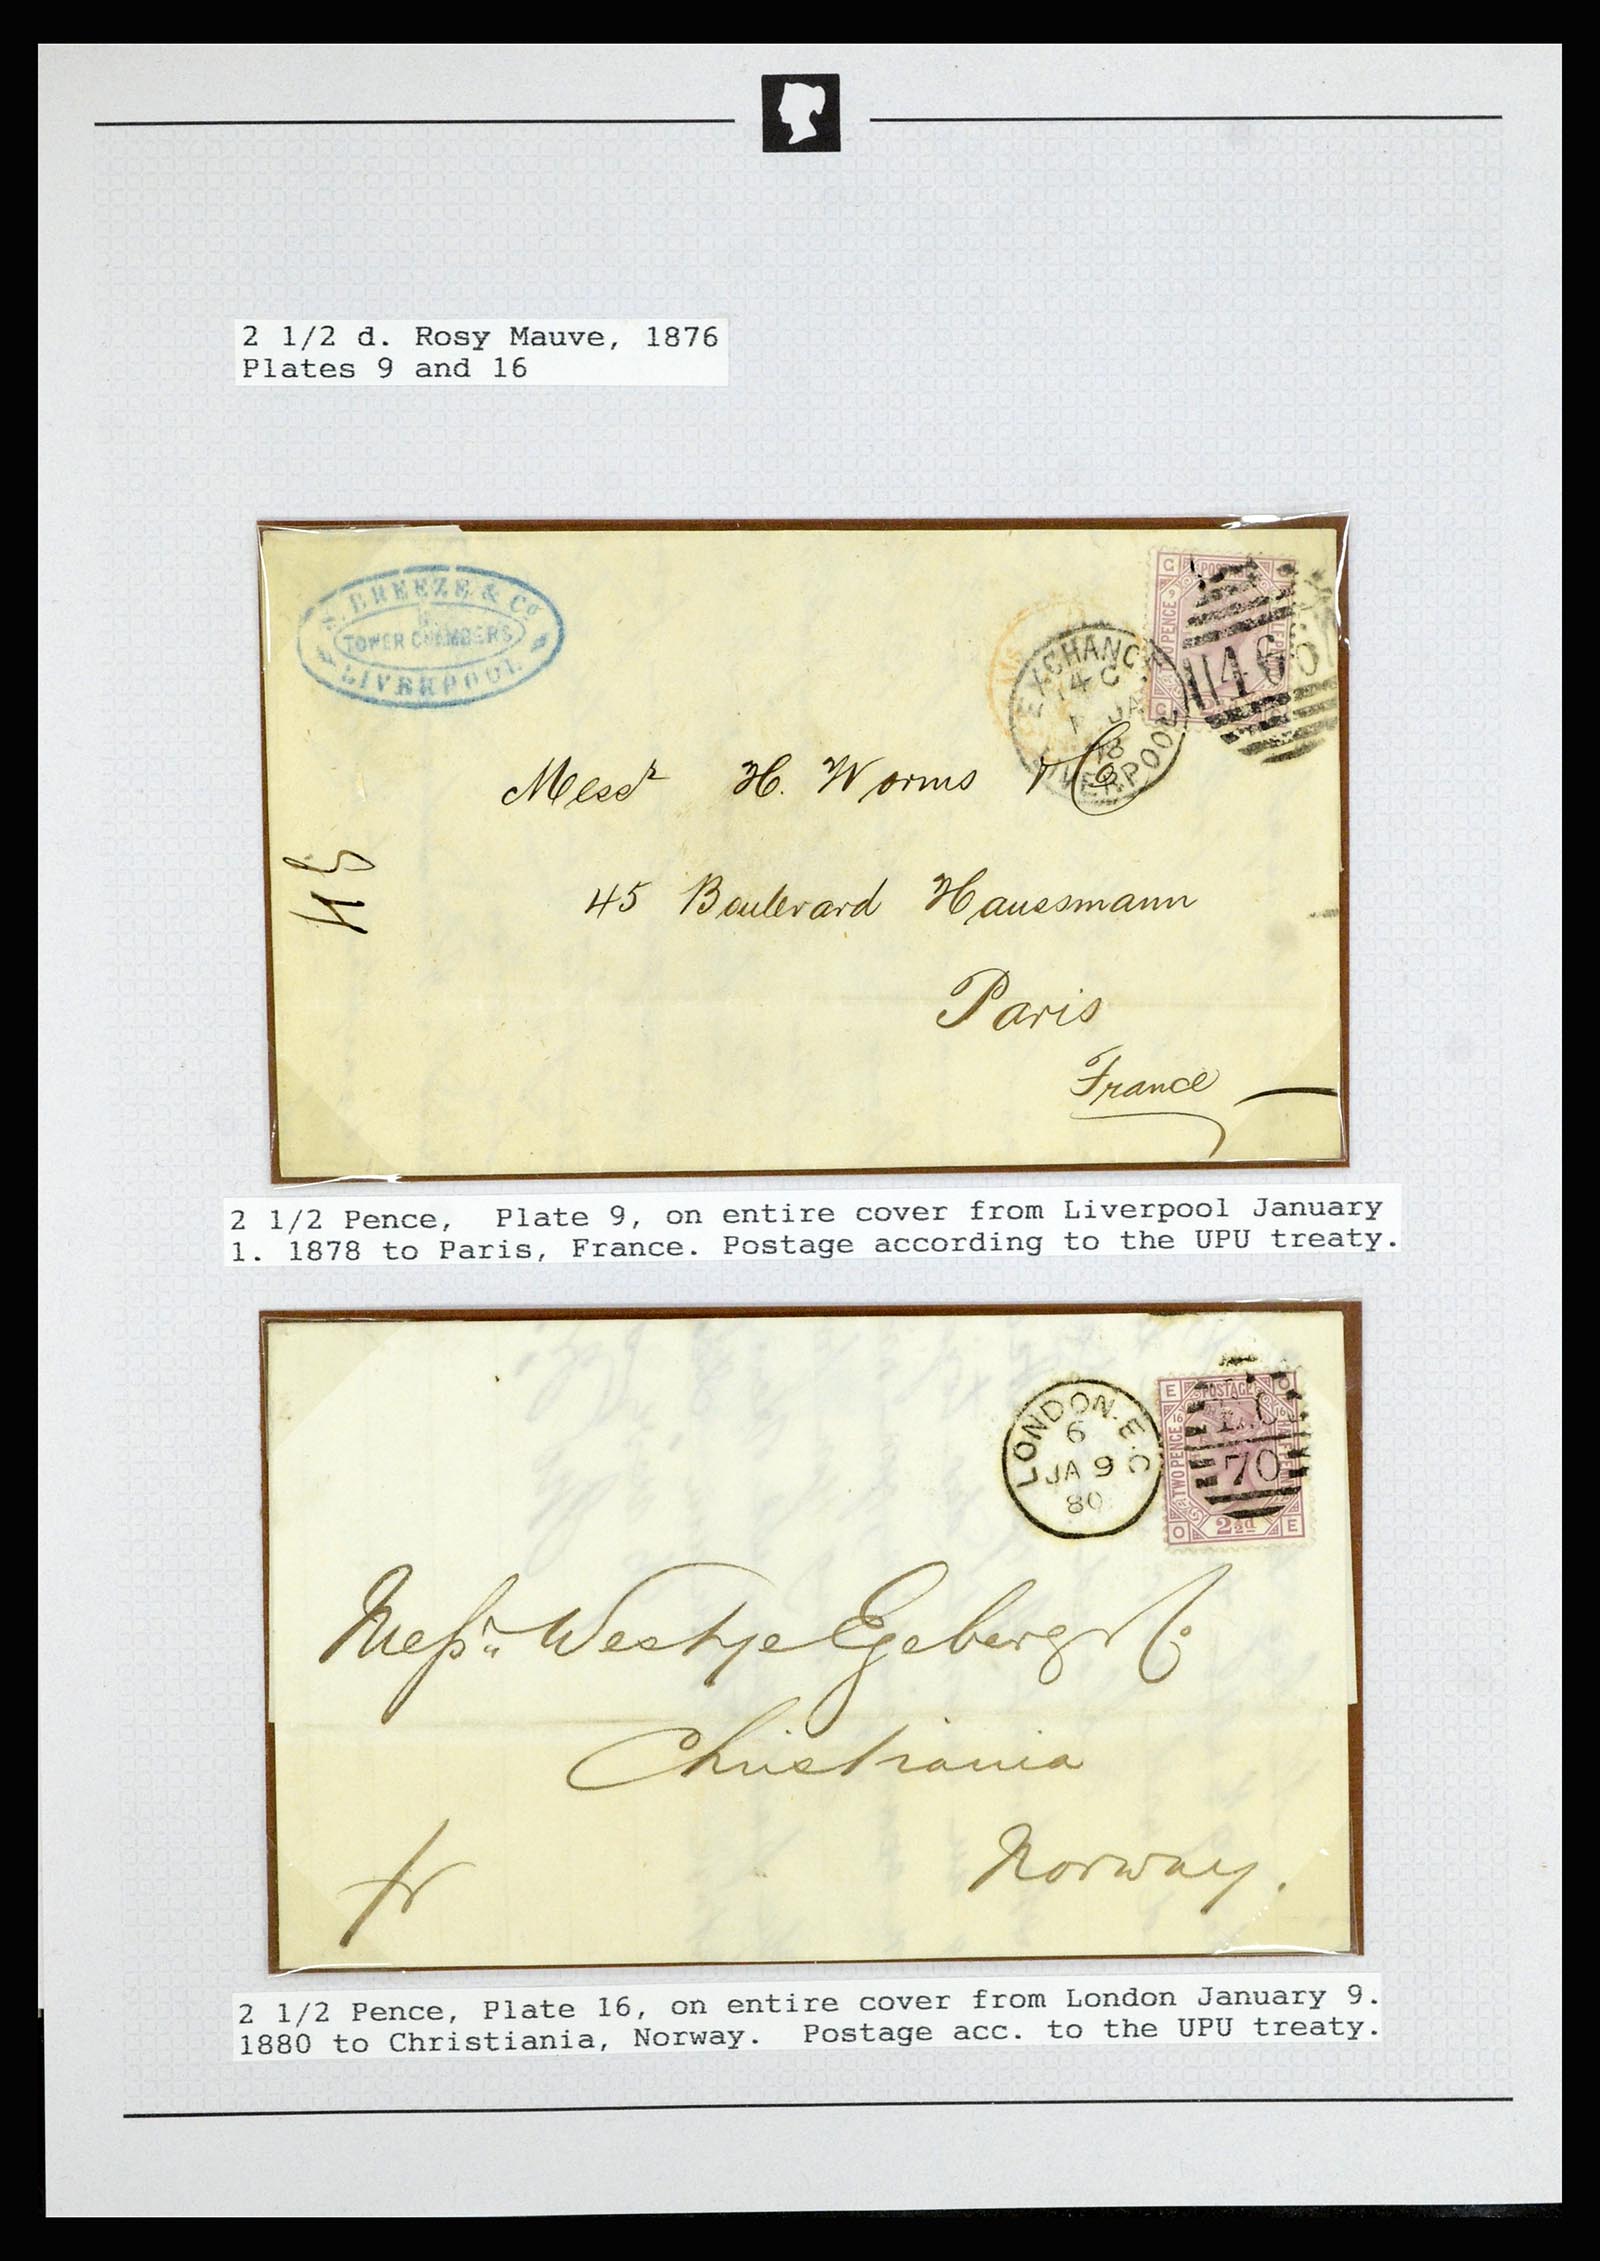 2 1/2 d. Rosy Mauve, 1876
Plates 9 and 16
BREEZE & Co
TOWER CHAMBERS
LIVERPOOL
EXCHANGE
14 C
JA
78
LIVERPOOL
466
G POSTAGE
TWO PENCE
9
G
Messrs H. Worms & Co
45 Boulevard Haussmann
Paris
France
48
2 1/2 Pence,  Plate 9, on entire cover from Liverpool January
1. 1878 to Paris, France. Postage according to the UPU treaty.
LONDON. E.C
6
JA 9
80
E POSTAGE O
16 16
TWO PENCE HALFPENNY
O 2½d E
E.C
70
Messrs Westye Egeberg & Co
Christiania
Norway.
2 1/2 Pence, Plate 16, on entire cover from London January 9.
1880 to Christiania, Norway.  Postage acc. to the UPU treaty.